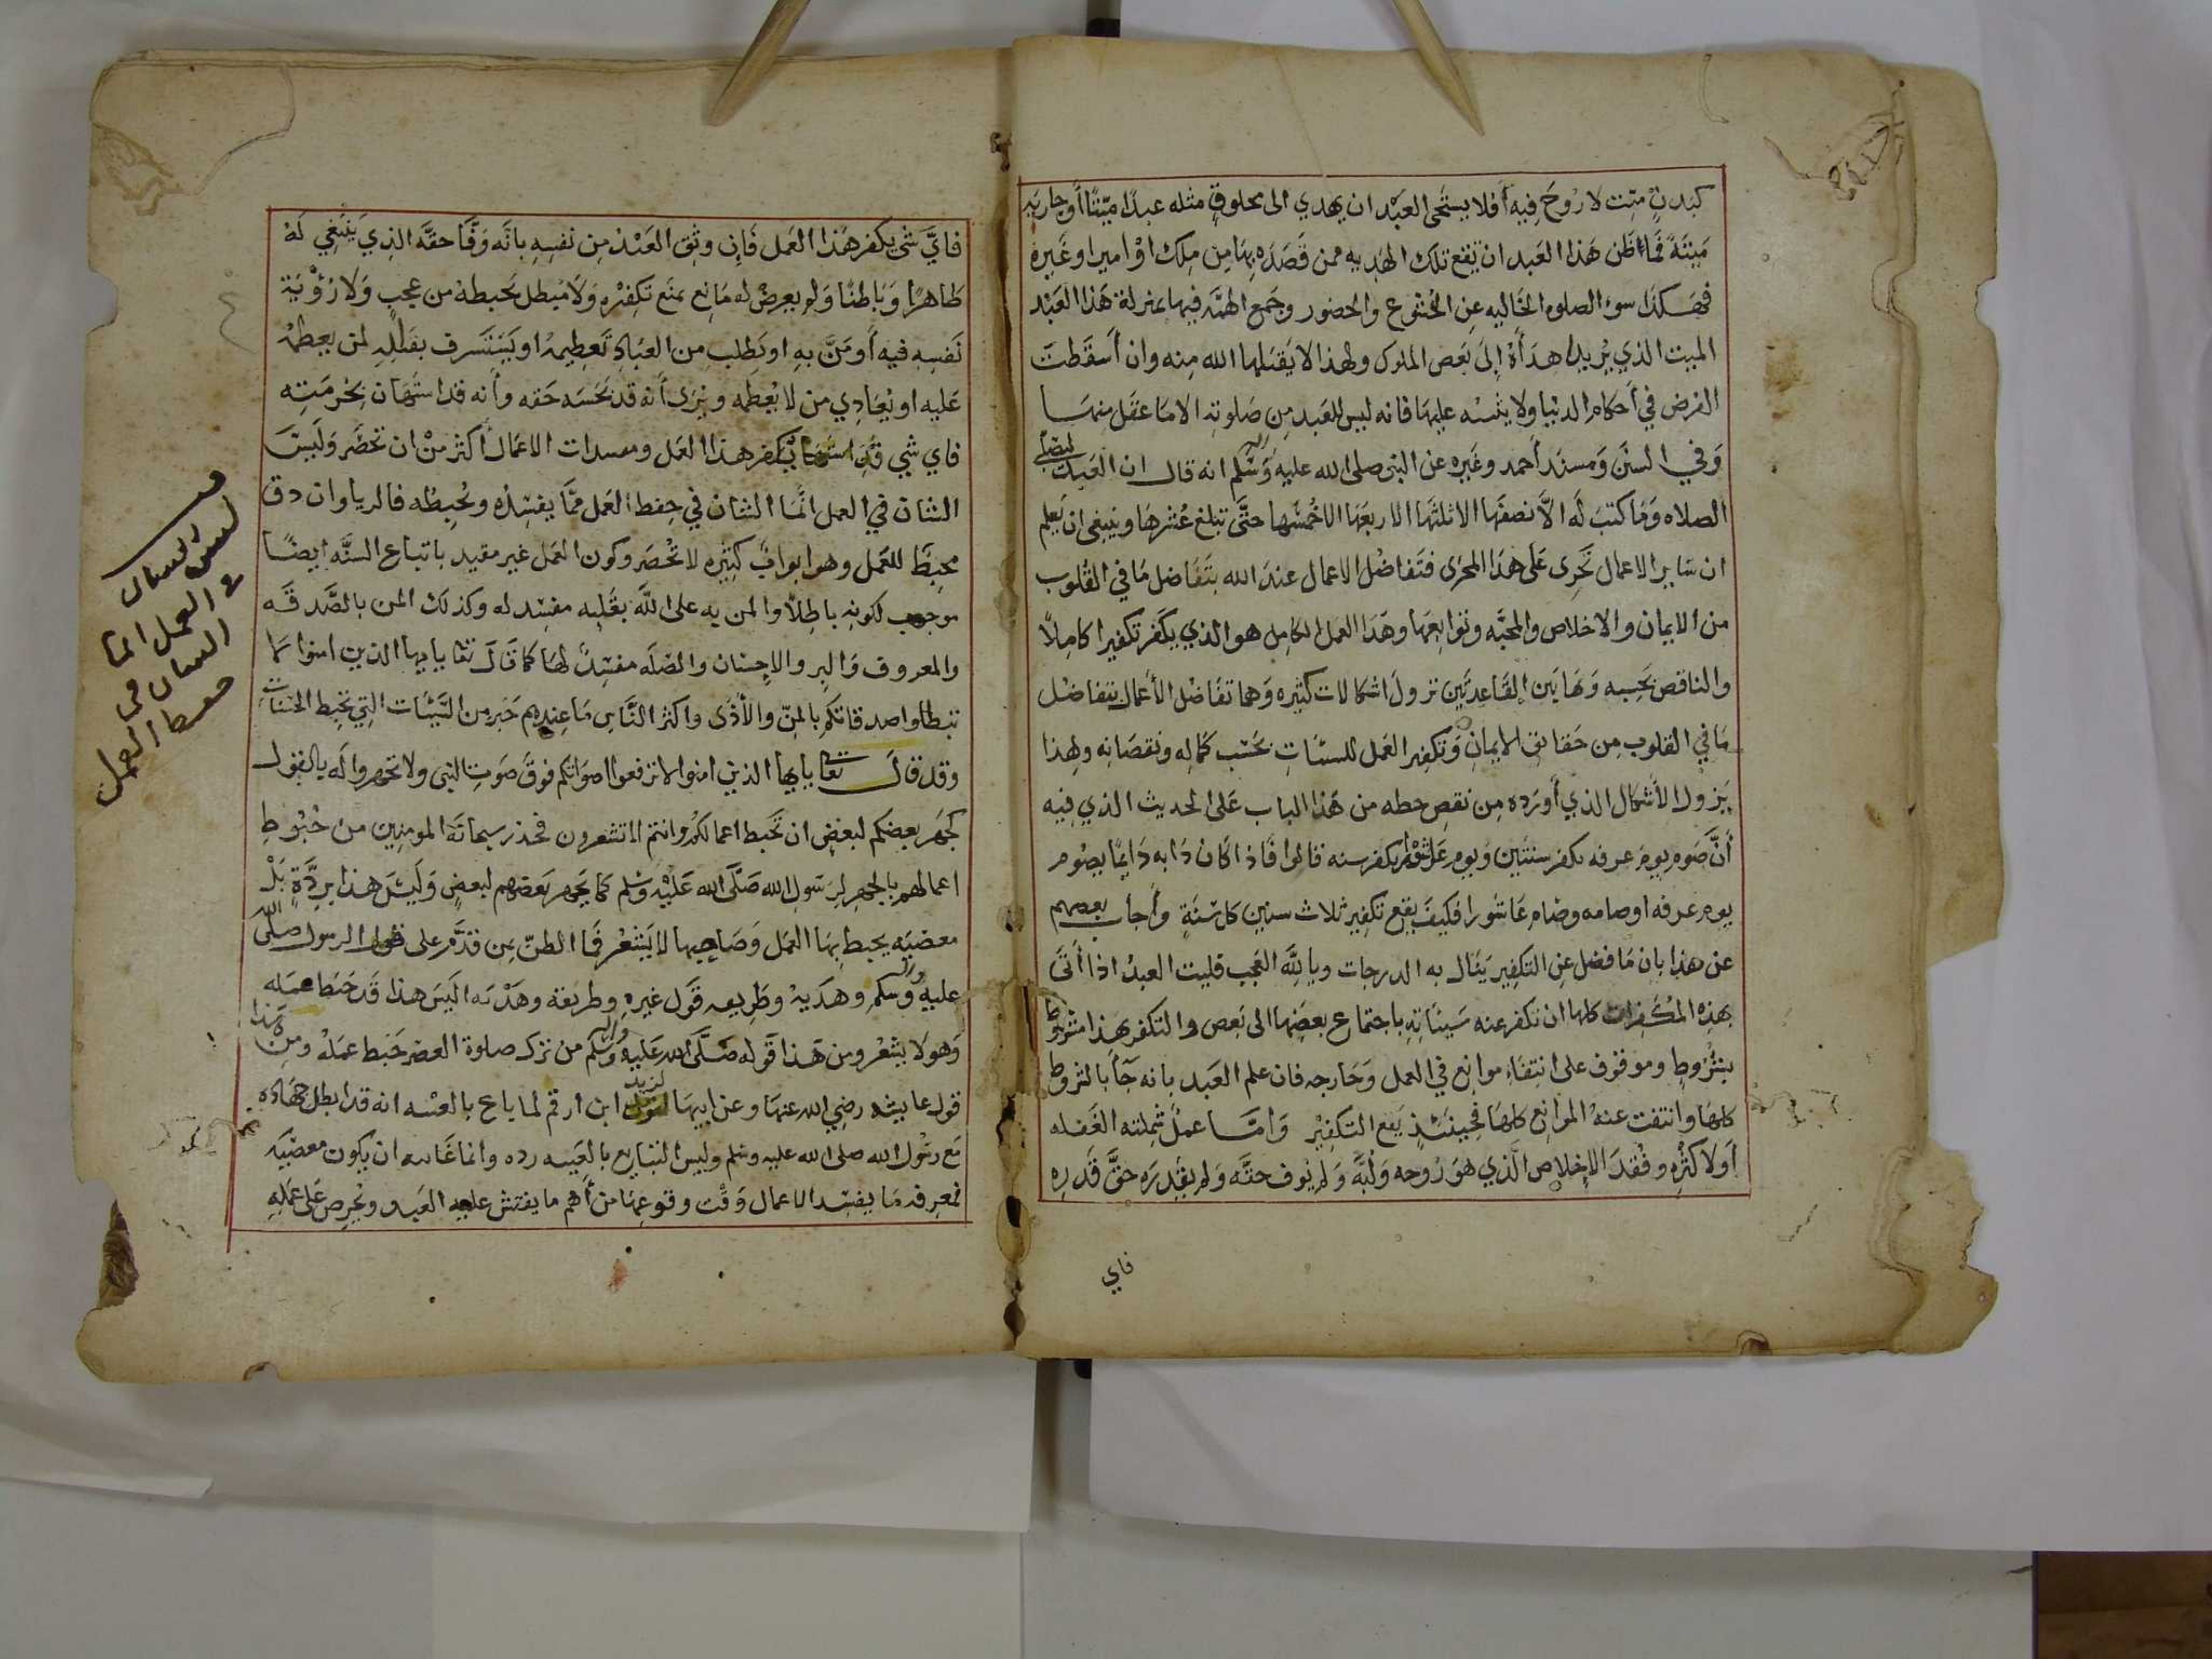 كبدن ميّت لا روح فيه أفلا يستحى العبد ان يهدي الى مخلوق مثله عبدًا ميّتًا أو جاريه
ميتةً فما ظن هذا العبد ان تقع تلك الهديه ممن قصده بها من ملك او امير او غيره
فهكذا سوء الصلوه الخاليه عن الخشوع والحضور وجمع الهمّه فيها بمنزلة هذا العبد
الميت الذي يريد اهداه إلى بعض الملوك ولهذا لا يقبلها الله منه وان أسقطت
الفرض في أحكام الدنيا ولا يثيبه عليها فانه ليس للعبد من صلوته الا ما عقل منها
وفي السنن ومسند أحمد وغيره عن النبى صلى الله عليه واله وسلم انه قال ان العبد ليصلى
الصلاه وما كتب له الّا نصفها الا ثلثها الا ربعها الا خمسها حتّى تبلغ عشرها وينبغى ان يعلم
ان ساير الاعمال تجرى على هذا المجرى فتفاضل الاعمال عند الله بتفاضل ما في القلوب
من الايمان والاخلاص والمحبّه وتوابعها وهذا العمل الكامل هو الذي يكفر تكفيرا كاملًا
والناقص بحسبه وبهاتين القاعدتين تزول اشكالات كثيره وهما تفاضل الأعمال بتفاضل
ما في القلوب من حقائق الايمان وتكفير العمل للسيئات بحسب كماله ونقصانه ولهذا
يزول الأشكال الذي أورده من نقص حظه من هذا الباب على الحديث الذي فيه
أنّ صوم يوم عرفه يكفر سنتين ويوم عاشورا يكفر سنه قالوا فاذا كان دابه دايمًا يصوم
يوم عرفه او صامه وصام عاشورا فكيف يقع تكفير ثلاث سنين كل سنةٍ وأجاب بعضهم
عن هذا بان ما فضل عن التكفير ينال به الدرجات ويا لله العجب فليت العبد اذا أتى
بهذه المكفرات كلها ان تكفر عنه سيئاته باجتماع بعضها الى بعض والتكفر بهذا مشروط
بشروطٍ وموقوف على انتفاء موانع في العمل وخارجه فان علم العبد بانه جآ بالشروط
كلها وانتفت عنه الموانع كلها فحينئذ يقع التكفير وأمّا عملٌ شملته الغفله
أو لاكثره وفقد الإخلاص الّذي هو روحه ولبّه ولم يوف حقّه ولم يقدره حقّ قدره
فاي
فايّ شى يكفر هذا العمل فإن وثق العبد من نفسه بانّه وفّا حقّه الذي ينبغي له
ظاهرًا وباطنًا ولم يعرض له مانع يمنع تكفيره ولا مبطل يحبطه من عجب ولا رؤية
نفسه فيه أو منّ به او يطلب من العباد تعظيمه او يستشرف بقلبه لمن يعظمه
عليه او يعادي من لا يعظمه ويرى أنه قد بخسه حقه وأنه قد استهان بحرمته
فاي شي يكفر هذا العمل ومفسدات الاعمال أكثر من ان تحصر وليس
الشان في العمل انّما الشان في حفظ العمل ممّا يفسده ويحبطه فالريا وان دق
محبط للعمل وهو ابواب كثيره لا تحصر وكون العمل غير مقيد باتباع السنّه ايضًا
موجب لكونه باطلًا والمن به على الله بقلبه مفسد له وكذلك المن بالصّدقه
والمعروف والبر والإحسان والصله مفسدٌ لها كما قال تعا يايها الذين امنوا لا
تبطلوا صدقاتكم بالمنّ والأذى واكثر النّاس ما عندهم خبر من السّيئات التي تحبط الحسنات
وقد قال تعا يايها الذين امنوا لا ترفعوا اصواتكم فوق صوت النبى ولا تجهروا له بالقول
كجهر بعضكم لبعض ان تحبط اعمالكم وانتم لا تشعرون فحذر سبحانه المومنين من حبوط
اعمالهم بالجهر لرسول الله صلّى الله عليه وسلم كما يجهر بعضهم لبعض وليس هذا بردّةٍ بل
معصيه يحبط بها العمل وصاحبها لا يشعر فما الظنّ بمن قدّم على قول الرسول صلى الله
عليه واله وسلم وهديه وطريقه قول غيره وطريقة وهديه اليس هذا قد حبط عمله
وهو لا يشعر ومن هذا قوله صلّى الله عليه واله وسلم من ترك صلوة العصر حبط عمله ومن هذا
قول عايشه رضي الله عنها وعن ابيها لزيد ابن ارقم لما باع بالعينه انه قد ابطل جهاده
مع رسول الله صلى الله عليه وسلم وليس التبايع بالعينه رده وانما غايته ان يكون معصيه
فمعرفه ما يفسد الاعمال وقت وقوعها من أهم ما يفتش عليه العبد ويحرص على عمله
ليس الشان
في العمل انما
الشان في
حفظ العمل